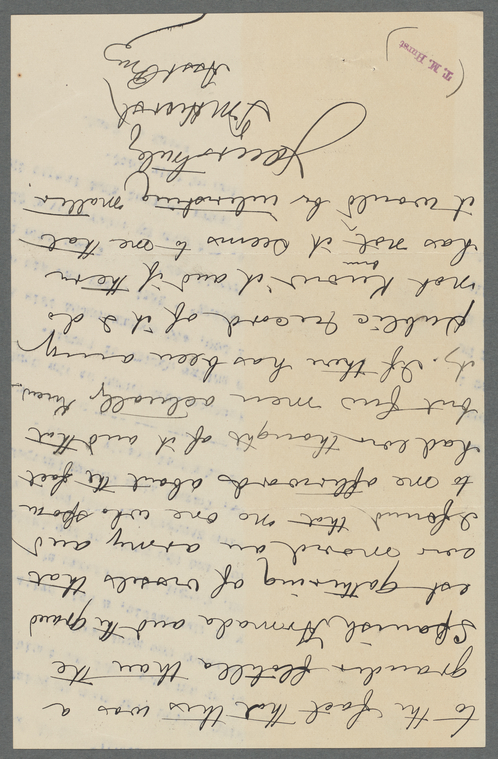 to the fact that this was a
grander flotilla than the
Spanish Armada and the grand
est gathering of vessels that
ever moved an army and
I found that no one who spoke
to me afterwards about the fact
had ever thought of it and that
but few men actually knew
it. If there has been any
public record of it I do
not know it and if there
has not been it seems to me that
it would be interesting matter
Yours truly
T M Hurst
T. M. Hurst